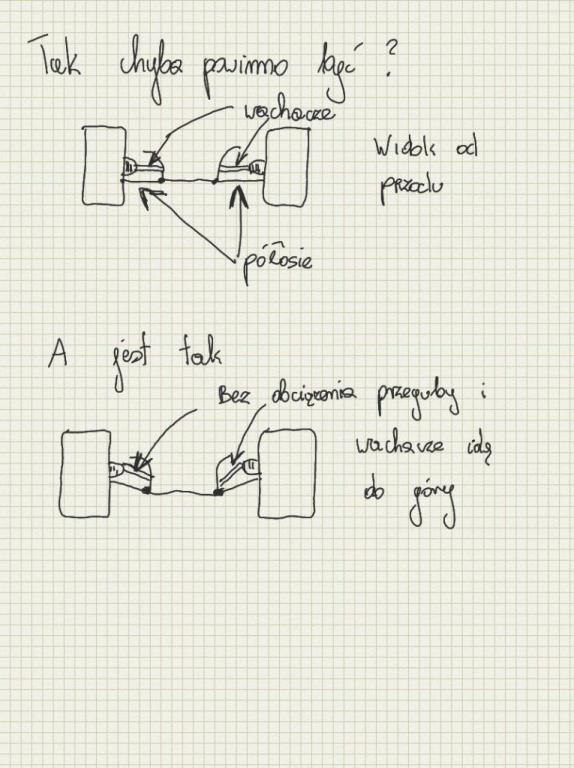 Tak chyba powinno być?
wachacze
Widok od
przodu
półosie
A jest tak
Bez obciążenia przeguby i
wachacze idą
do góry